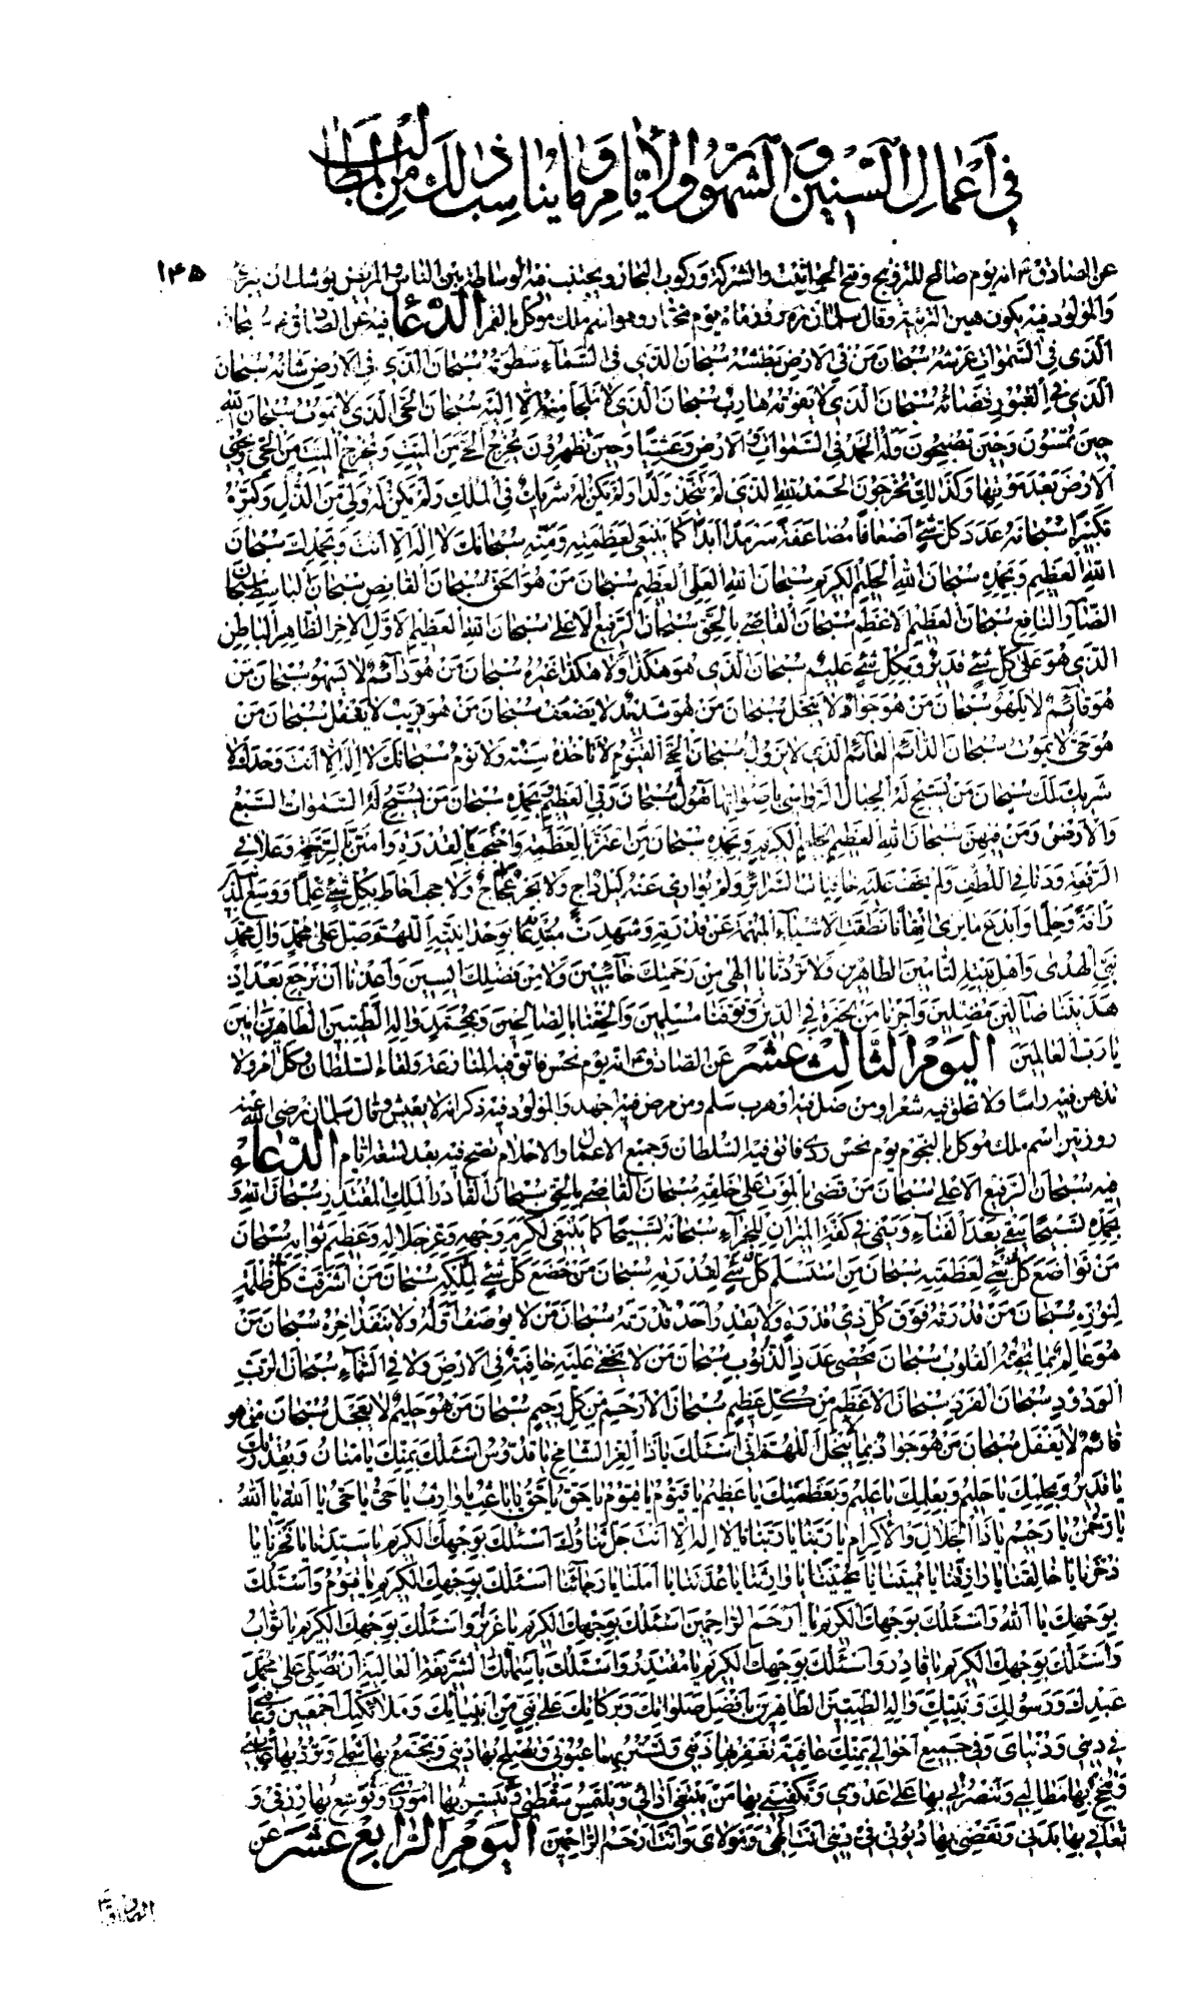 في أعمال السنين والشهور والأيام وما يناسب ذلك من المطالب
١٤٥
عن الصادق ع انه يوم صالح للتزويج وفتح الحوانيت والشركة وركوب البحار ويجتنب فيه الوساطة بين الناس والمريض يوشك ان يبرئ
والمولود فيه يكون هين التربية وقال سلمان ره روز ماه يوم مختار وهو اسم ملك موكل بالقمر الدعاء فيه عن الصادق ع سبحان
الذي في السموات عرشه سبحان من في الارض بطشه سبحان الذي في السماء سطوته سبحان الذي في الارض شانه سبحان
الذي في القبور قضائه سبحان الذي لا يفوته هارب سبحان الذي لا ملجأ منه الا اليه سبحان الحي الذي لا يموت سبحان الله
حين تمسون وحين تصبحون وله الحمد في السموات والارض وعشيا وحين تظهرون يخرج الحي من الميت ويخرج الميت من الحي ويحيي
الارض بعد موتها وكذلك تخرجون الحمد لله الذي لم يتخذ ولدا ولم يكن له شريك في الملك ولم يكن له ولي من الذل وكبره
تكبيرا سبحانه عدد كل شئ اضعافا مضاعفة سرمدا ابدا كما ينبغي لعظمته ومنه سبحانك لا اله الا انت وبحمدك سبحان
الله العظيم وبحمده سبحان الله الحليم الكريم سبحان الله العلي العظيم سبحان من هو الحق سبحان القابض سبحان الباسط سبحان
الضار النافع سبحان العظيم الاعظم سبحان القاضي بالحق سبحان الرفيع الاعلى سبحان الله العظيم الاول الاخر الظاهر الباطن
الذي هو على كل شئ قدير وبكل شئ عليم سبحان الذي هو هكذا ولا هكذا غيره سبحان من هو دائم لا يسهو سبحان من
هو قائم لا يلهو سبحان من هو جواد لا يبخل سبحان من هو شديد لا يضعف سبحان من هو قريب لا يغفل سبحان من
هو حي لا يموت سبحان الدائم القائم الذي لا يزول سبحان الحي القيوم لا تاخذه سنة ولا نوم سبحانك لا اله الا انت وحدك لا
شريك لك سبحان من تسبح له الجبال الرواسي باصواتها تقول سبحان ربي العظيم وبحمده سبحان من يسبح له السموات السبع
والارض ومن فيهن سبحان الله العظيم الحليم الكريم وبحمده سبحان من اعتز بالعظمة واحتجب بالقدرة وامتن بالرحمة وعلا في
الرفعة ودنا في اللطف ولم يخف عليه خافيات السرائر ولم يوارى عنه ليل داج ولا بحر عجاج ولا حجب احاط بكل شئ علما ووسع المذنبين
رافة وحلما وابدع ما برئ اتقانا نطقت الاشياء المبهمة عن قدرته وشهدت مبتدئها بوحدانيته اللهم صل على محمد وال محمد
نبي الهدى واهل بيته التامين الطاهرين ولا تردنا يا الهي من رحمتك خائبين ولا من فضلك ايسين واعذنا ان نرجع بعد اذ
هديتنا ضالين مضلين واجرنا من الحيرة في الدين وتوفنا مسلمين والحقنا بالصالحين وبمحمد واله الطيبين الطاهرين امين
يا رب العالمين اليوم الثالث عشر عن الصادق ع انه يوم نحس فاتق فيه المنازعة ولقاء السلطان وكل امر ولا
تدهن فيه راسا ولا تحلق فيه شعرا ومن ضل فيه او هرب سلم ومن مرض فيه اجهد والمولود فيه ذكر انه لا يعيش وقال سلمان رضى الله عنه
روز تير اسم ملك موكل بالنجوم يوم نحس ردي فاتق فيه السلطان وجميع الاعمال والاحلام تصح فيه بعد تسعة ايام الدعاء
فيه سبحان الرفيع الاعلى سبحان من قضى بالموت على خلقه سبحان القاضي بالحق سبحان القادر الملك المقتدر سبحان الله و
بحمده تسبيحا يبقى بعد الفناء وينمي في كفة الميزان للجزاء سبحانه تسبيحا كما ينبغي لكرم وجهه وعز جلاله وعظيم ثوابه سبحان
من تواضع كل شئ لعظمته سبحان من استسلم كل شئ لقدرته سبحان من خضع كل شئ لملكه سبحان من اشرقت كل ظلمة
لنوره سبحان من قدرته فوق كل ذي قدرة ولا يقدر احد قدرته سبحان من لا يوصف اوله ولا ينفد اخره سبحان من
هو عالم بما تجنه القلوب سبحان محصى عدد الذنوب سبحان من لا يخفى عليه خافية في الارض ولا في السماء سبحان الرب
الودود سبحان الفرد سبحان الاعظم من كل عظيم سبحان الارحم من كل رحيم سبحان من هو حليم لا يعجل سبحان من هو
قائم لا يغفل سبحان من هو جواد لا يبخل اللهم اني اسئلك يا ذا العز الشامخ يا قدوس اسئلك بمنك يا منان وبقدرتك
يا قدير وبحلمك يا حليم وبعلمك يا عليم وبعظمتك يا عظيم يا قيوم يا قيوم يا حق يا حق يا باعث يا وارث يا حي يا حي يا الله يا الله
يا رحمن يا رحيم يا ذا الجلال والاكرام يا ربنا يا ربنا يا لا اله الا انت جل ثناؤك اسئلك بوجهك الكريم يا سيدنا يا فخرنا يا
ذخرنا يا خالقنا يا رازقنا يا مميتنا يا محيينا يا وارثنا يا عدتنا يا املنا يا رجائنا اسئلك بوجهك الكريم يا قيوم واسئلك
بوجهك يا الله واسئلك بوجهك الكريم يا ارحم الراحمين اسئلك بوجهك الكريم يا عزيز واسئلك بوجهك الكريم يا تواب
واسئلك بوجهك الكريم يا قادر واسئلك بوجهك الكريم يا مقتدر واسئلك باسمائك الشريفة العالية ان تصلي على محمد
عبدك ورسولك ونبيك واله الطيبين الطاهرين بافضل صلواتك وبركاتك على نبي من انبيائك وملائكتك اجمعين وعافني
في ديني ودنياى وفي جميع احوالي بمنك عافية تغفر بها ذنبي وتستر بها عيوبي وتصلح بها ديني وتجمع بها شملي وترد بها غائبي
وتنجح بها مطالبي وتنصرني بها على عدوى وتكفيني بها من يبتغي اذائي ويلتمس سقطتي وتيسر بها اموري وتوسع بها رزقي و
تعافي بها بدني وتقضي بها ديوني في ديني انت الهي ومولاى وانت ارحم الراحمين اليوم الرابع عشر عن
الصادق ع